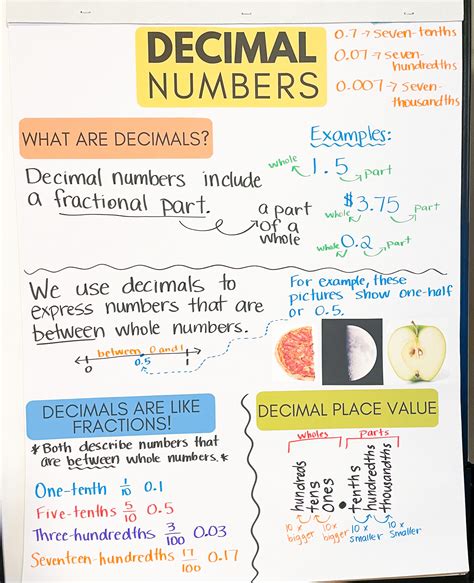 DECIMAL
NUMBERS
0.7 → seven-tenths
0.07 → seven-
hundredths
0.007 → seven-
thousandths
WHAT ARE DECIMALS?
Decimal numbers include
a fractional part.
a part
of a
whole
Examples:
whole 1.5 part
whole $3.75 part
whole 0.2 part
We use decimals to
express numbers that are
between whole numbers.
between 0 and 1
0 0.5 1
For example, these
pictures show one-half
or 0.5.
DECIMALS ARE LIKE
FRACTIONS!
* Both describe numbers that
are between whole numbers. *
One-tenth 1/10 0.1
Five-tenths 5/10 0.5
Three-hundredths 3/100 0.03
Seventeen-hundredths 17/100 0.17
DECIMAL PLACE VALUE
wholes parts
hundreds
tens
ones
.
tenths
hundredths
thousandths
10 x bigger
10 x bigger
10 x smaller
10 x smaller